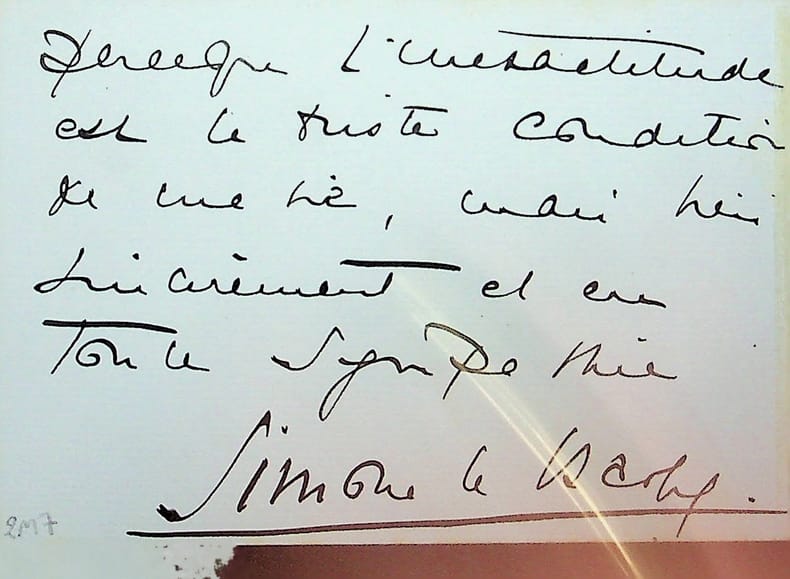 Parceque l'inexactitude
est la triste condition
de ma vie, mais
sincèrement et en
toute sympathie
Simone le Bargy.
2M7